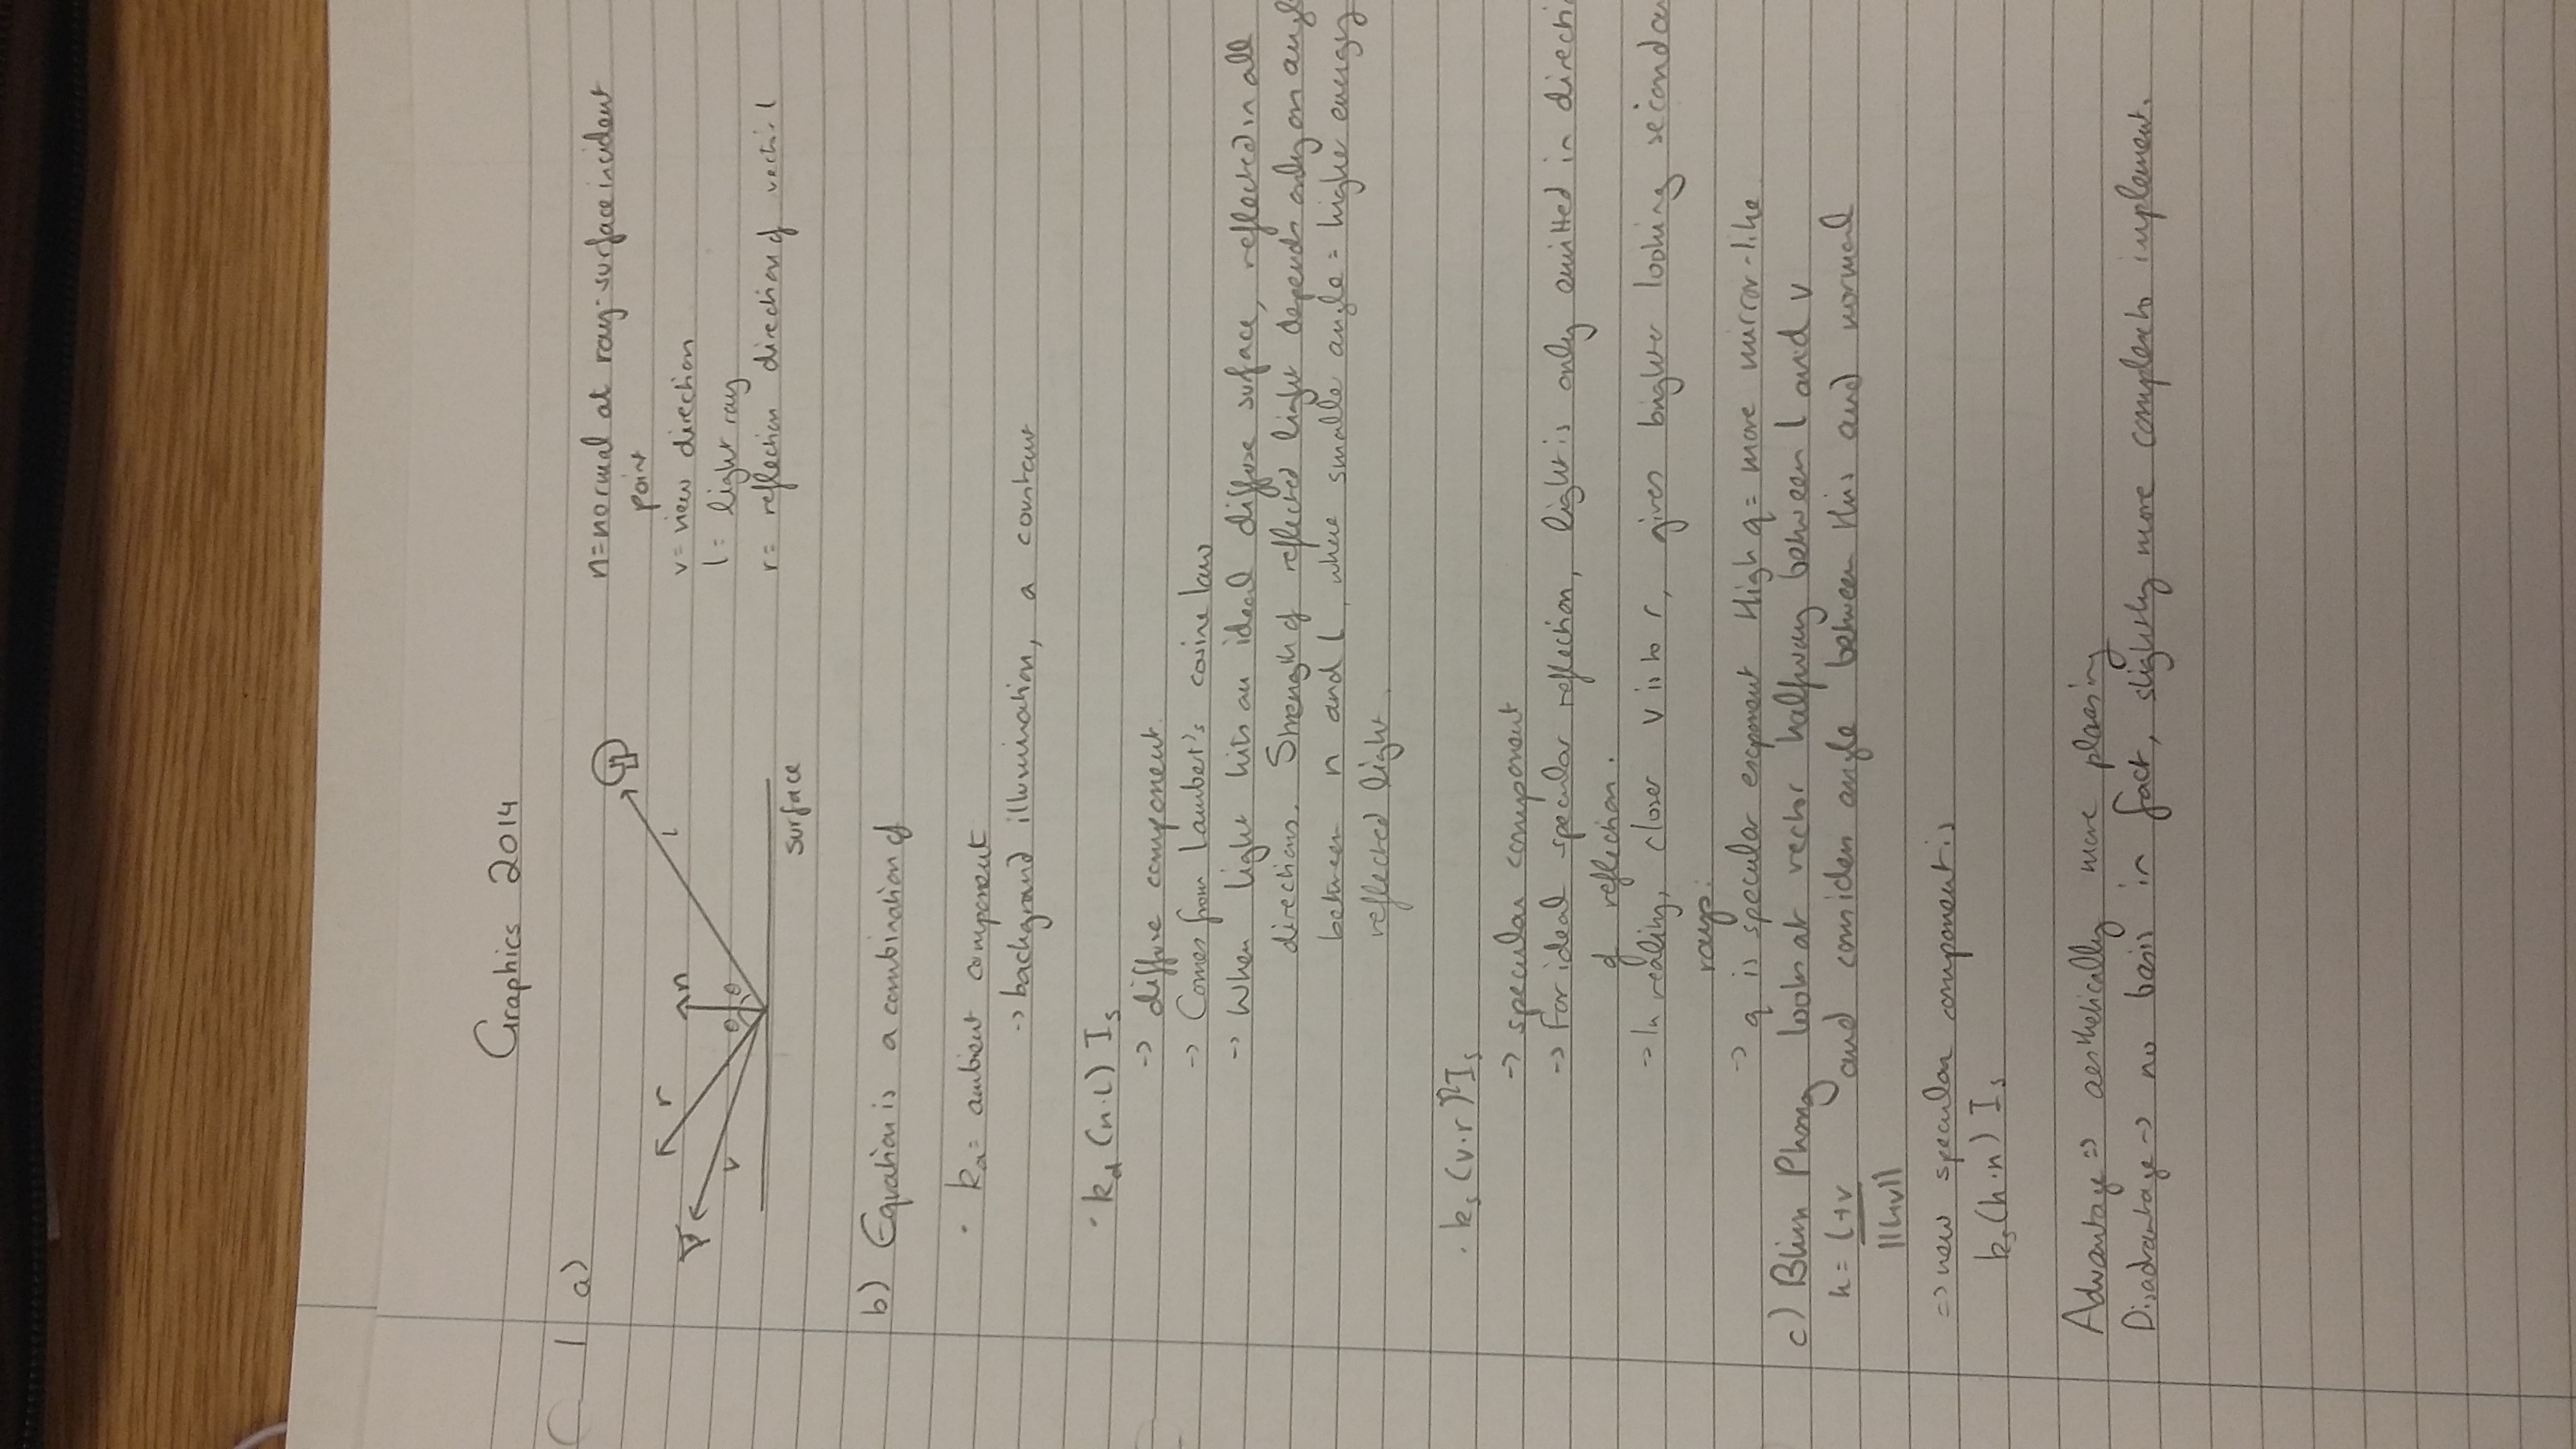 Graphics 2014
1 a)
n=normal at ray-surface incident
point
v= view direction
l= light ray
r= reflection direction of vector l
r
n
l
v
θ θ
surface
b) Equation is a combination of
· ka= ambient component
-> background illumination, a constant
· kd (n·l) Is
-> diffuse component.
-> Comes from Lambert's cosine law
-> When light hits an ideal diffuse surface, reflected in all
directions. Strength of reflected light depends only on angl
between n and l, where smaller angle = higher energy
reflected light.
· ks (v·r)^q Is
-> specular component
-> For ideal specular reflection, light is only emitted in directi
of reflection.
-> In reality, closer v is to r, gives brighter looking seconda
rays.
-> q is specular exponent High q = more mirror-like
c) Blinn Phong looks at vector halfway between l and v
h = l+v and considers angle between this and normal
||l+v||
=> new specular component is
ks(h·n) Is
Advantage => aesthetically more pleasing
Disadvantage -> no basis in fact, slightly more complex to implement.